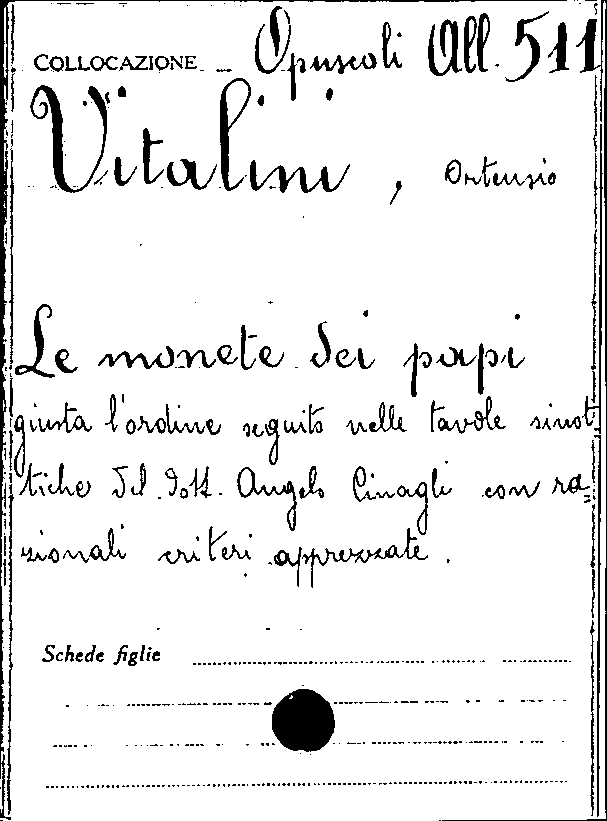 COLLOCAZIONE Opuscoli All. 511
Vitalini, Ortensio
Le monete dei papi
giusta l'ordine seguito nelle tavole sinot
tiche del dott. Angelo Cinagli con ra=
zionali criteri apprezzate.
Schede figlie